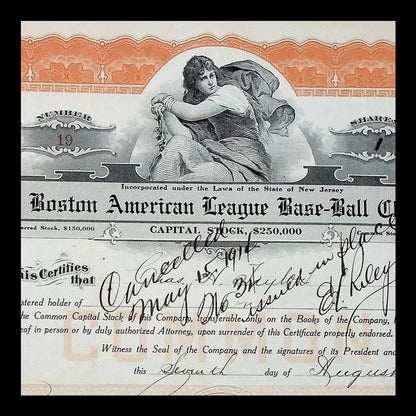 NUMBER
SHARES
19
1
Incorporated under the Laws of the State of New Jersey
Boston American League Base-Ball C
rred Stock, $150,000
CAPITAL STOCK, $250,000
Cancelled
May 15, 1914
No 31 issued in place
his Certifies
that
Chas. H. Taylor
E Riley
istered holder of
the Common Capital Stock of this Company, transferable only on the Books of the Company, b
eof in person or by duly authorized Attorney, upon surrender of this Certificate properly endorsed.
Witness the Seal of the Company and the signatures of its President and
this Seventh day of August